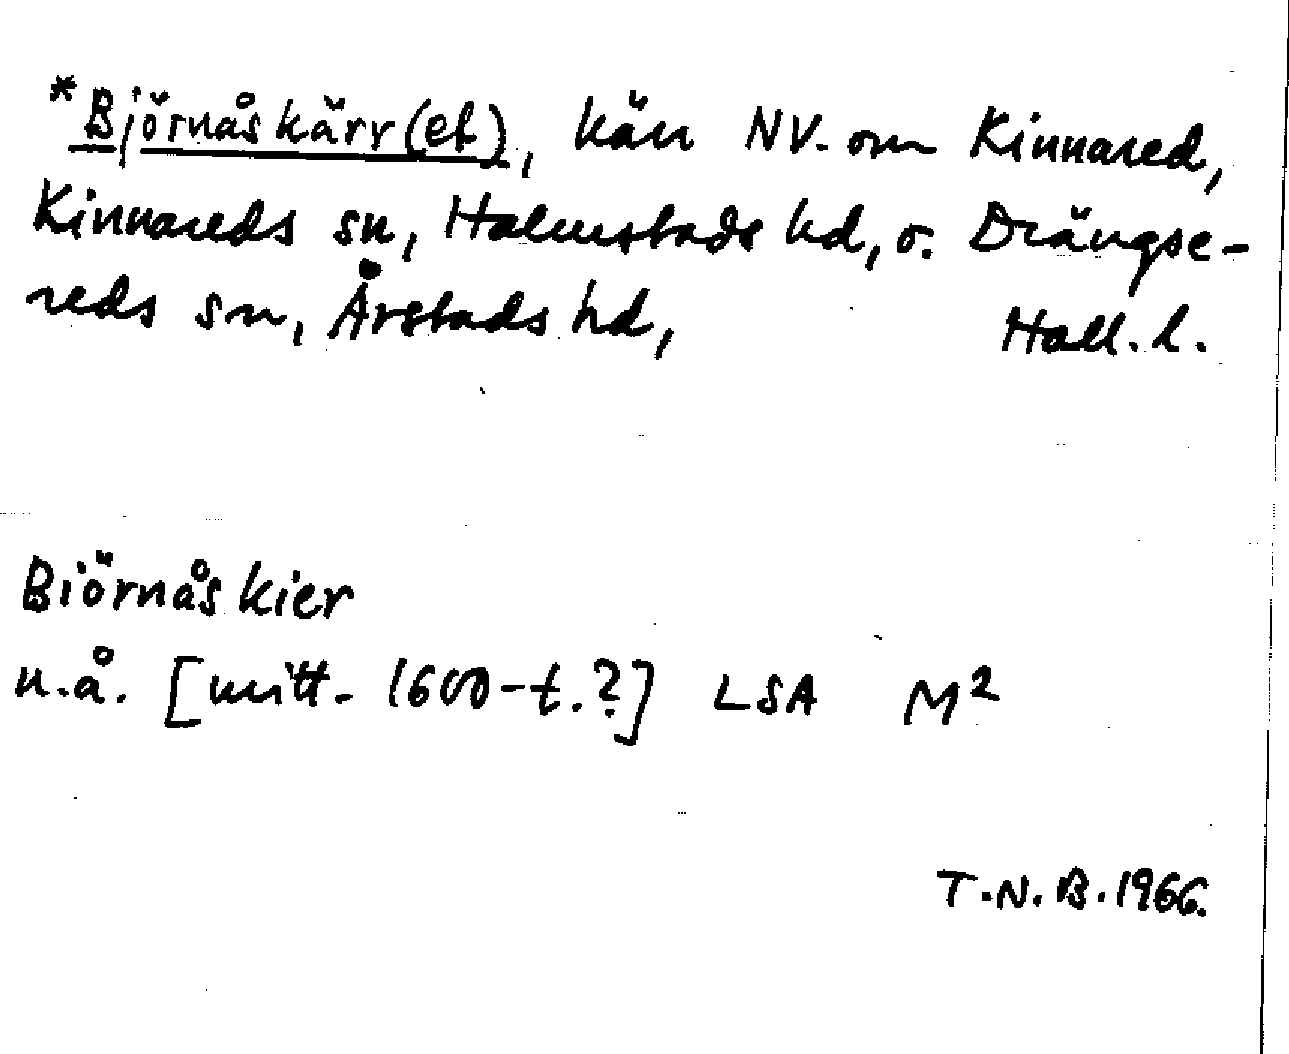 *Björnåskärr(et), kärr NV. om Kinnared,
Kinnareds sn, Halmstads hd, o. Drängse-
reds sn, Årstads hd, Hall. l.
Biörnås kier
u.å. [mitt. 1600-t.?] LSA M2
T.N.B. 1966.